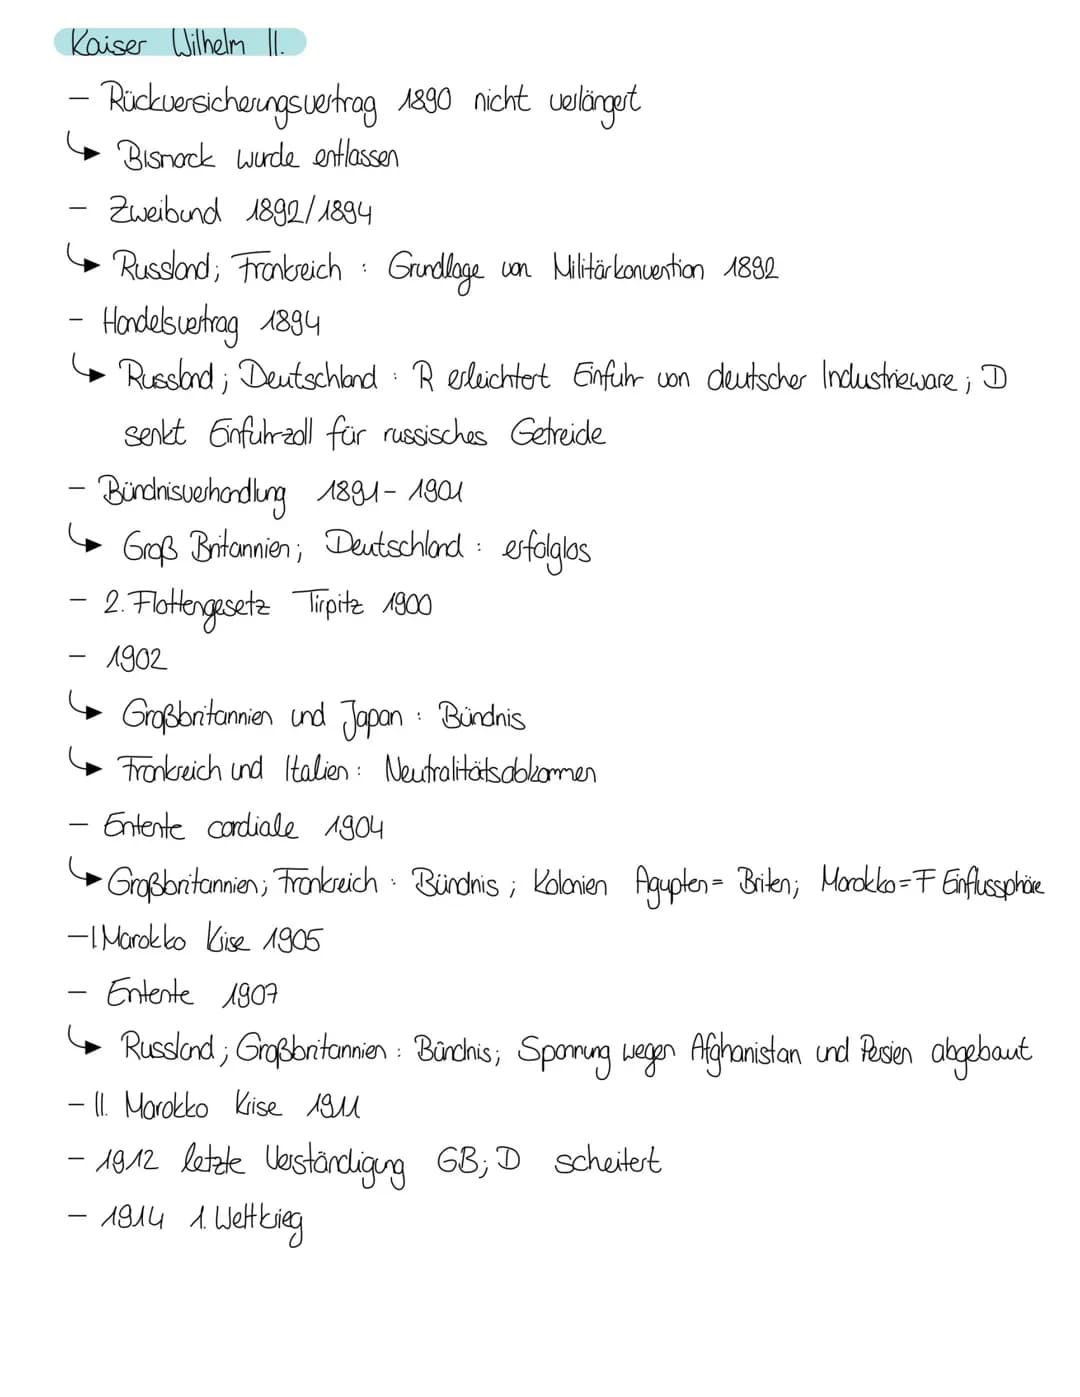 Kaiser Wilhelm II.
- Rückversicherungsvertrag 1890 nicht verlängert
↳ Bismarck wurde entlassen
- Zweibund 1892/1894
↳ Russland; Frankreich : Grundlage von Militärkonvention 1892
- Handelsvertrag 1894
↳ Russland; Deutschland : R erleichtert Einfuhr von deutscher Industrieware; D
senkt Einfuhrzoll für russisches Getreide
- Bündnisverhandlung 1891-1901
↳ Groß Britannien; Deutschland : erfolglos
- 2. Flottengesetz Tirpitz 1900
- 1902
↳ Großbritannien und Japan : Bündnis
↳ Frankreich und Italien : Neutralitätsabkommen
- Entente cordiale 1904
↳ Großbritannien; Frankreich : Bündnis; Kolonien Ägypten = Briten; Marokko = F Einflussphäre
- I Marokko Krise 1905
- Entente 1907
↳ Russland; Großbritannien : Bündnis; Spannung wegen Afghanistan und Persien abgebaut
- II. Marokko Krise 1911
- 1912 letzte Verständigung GB; D scheitert
- 1914 1. Weltkrieg